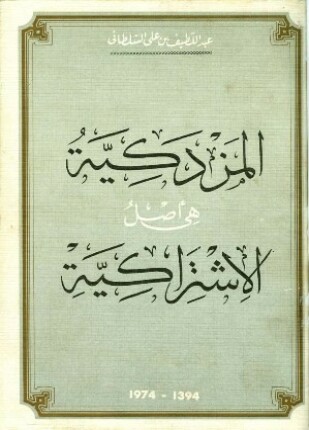 عبد اللطيف بن علي السلطاني
المَزْدَكِيَّةُ
هِيَ أَصْلُ
الإِشْتِرَاكِيَّةِ
1974 - 1394